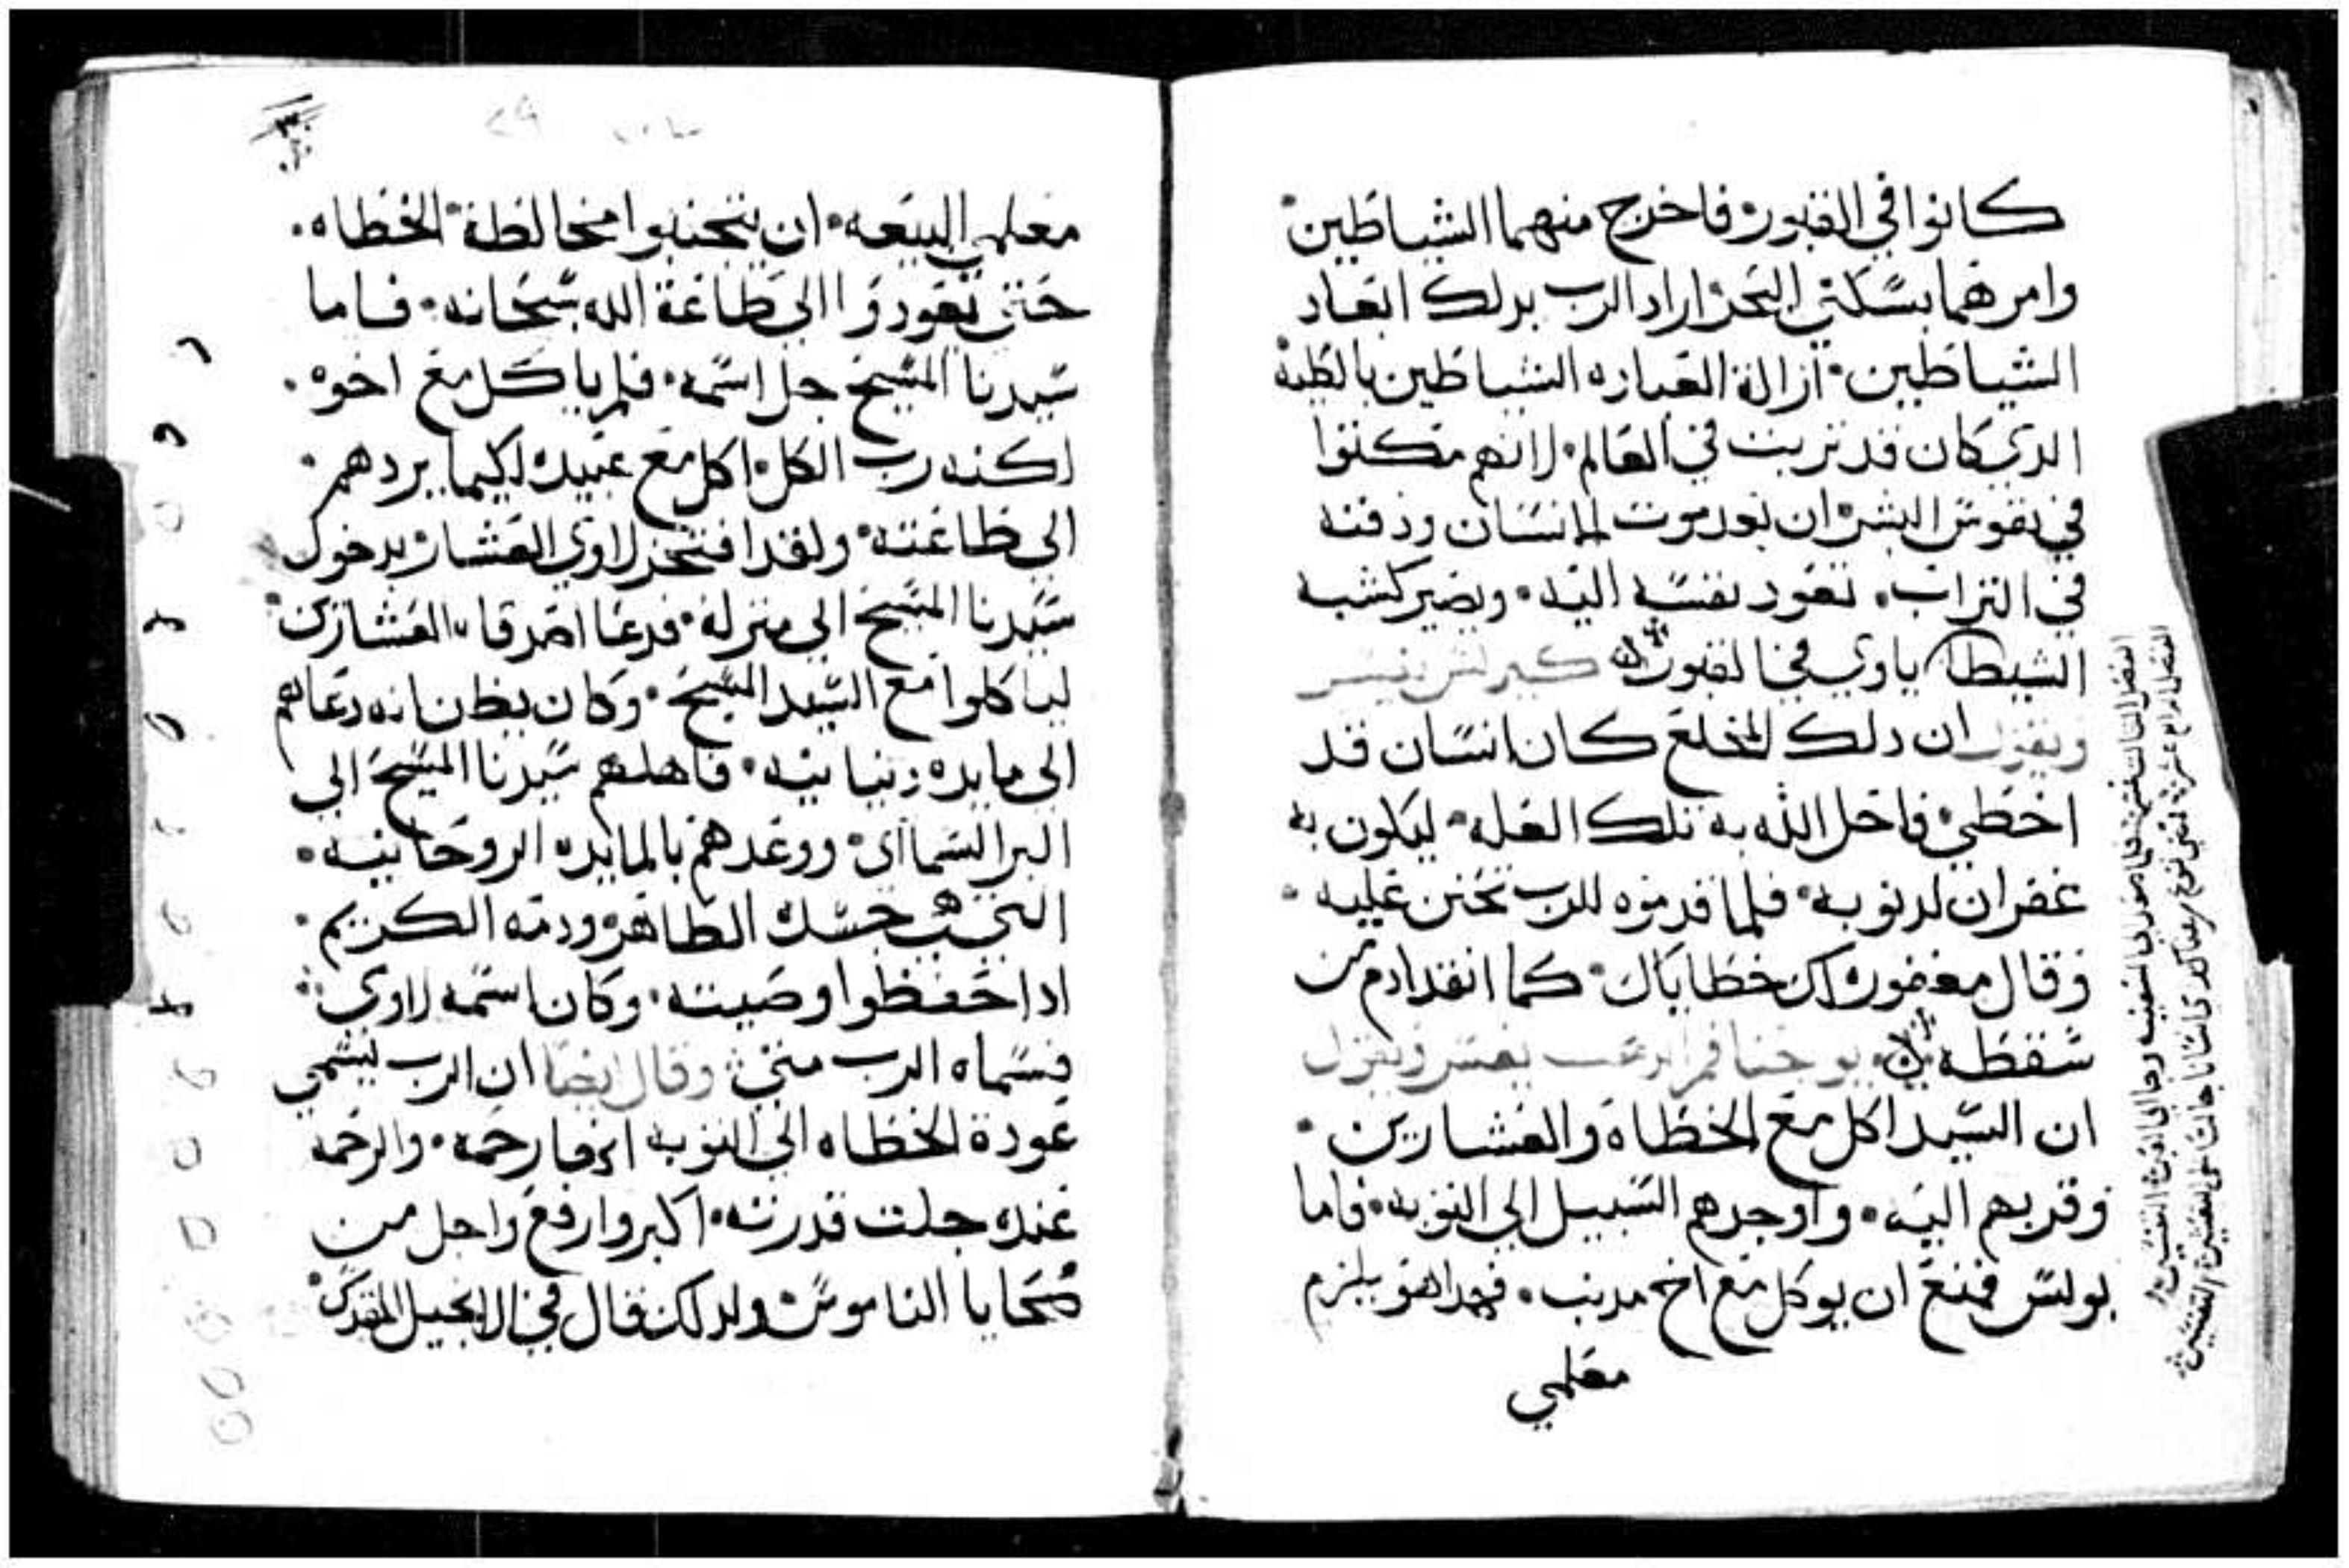 كانوا في القبور فاخرج منهما الشياطين
وامرهما بسكني البحر اراد الرب بدلك ابعاد
الشياطين ازالة العباره الشياطين بالطبه
الدي كان قد تربت في العالم لانهم مكنوا
في نفوس البشر ان بعد موت الانسان ودفنه
في التراب تعود نفسه اليه ويصير كشبه
الشيطان ياوي في القبور كيرلس يفسر
ويقول ان دلك المخلع كان انسان قد
اخطي فاحل الله به تلك العله ليكون به
غفران لدنوبه فلما قدموه للرب تحنن عليه
وقال مغفوره لك خطاياك كما انقد ادم من
سقطه يوحنا فم الدهب يفسر ويقول
ان السيد اكل مع الخطاه والعشارين
وقربهم اليه واوجدهم السبيل الي التوبه فاما
بولس فمنع ان يوكل مع اخ مدنب فهدا هو يلزم
معلمي
معلمي البيعه ان يتجنبوا مخالطة الخطاه
حتي يعودوا الي طاعة الله سبحانه فاما
سيدنا المسيح جل اسمه فلم ياكل مع اخوه
لكنه رب الكل اكل مع عبيده لكيما يردهم
الي طاعته ولقد افتخر لاوي العشار بدخول
سيدنا المسيح الي منزله فدعا اصدقاه العشارين
لياكلوا مع السيد المسيح وكان يظن انه دعاهم
الي مايده دنيانيه فاهلهم سيدنا المسيح الي
البر السماايي ووعدهم بالمايده الروحانيه
التي هي جسده الطاهر ودمه الكريم
ادا حفظوا وصيته وكان اسمه لاوي
فسماه الرب متي وقال ايضا ان الرب يسمي
عودة الخطاه الي التوبه انها رحمه والرحمه
عنده جلت قدرته اكبر وارفع واجل من
ضحايا الناموس ولدلك قال في الانجيل المقدس